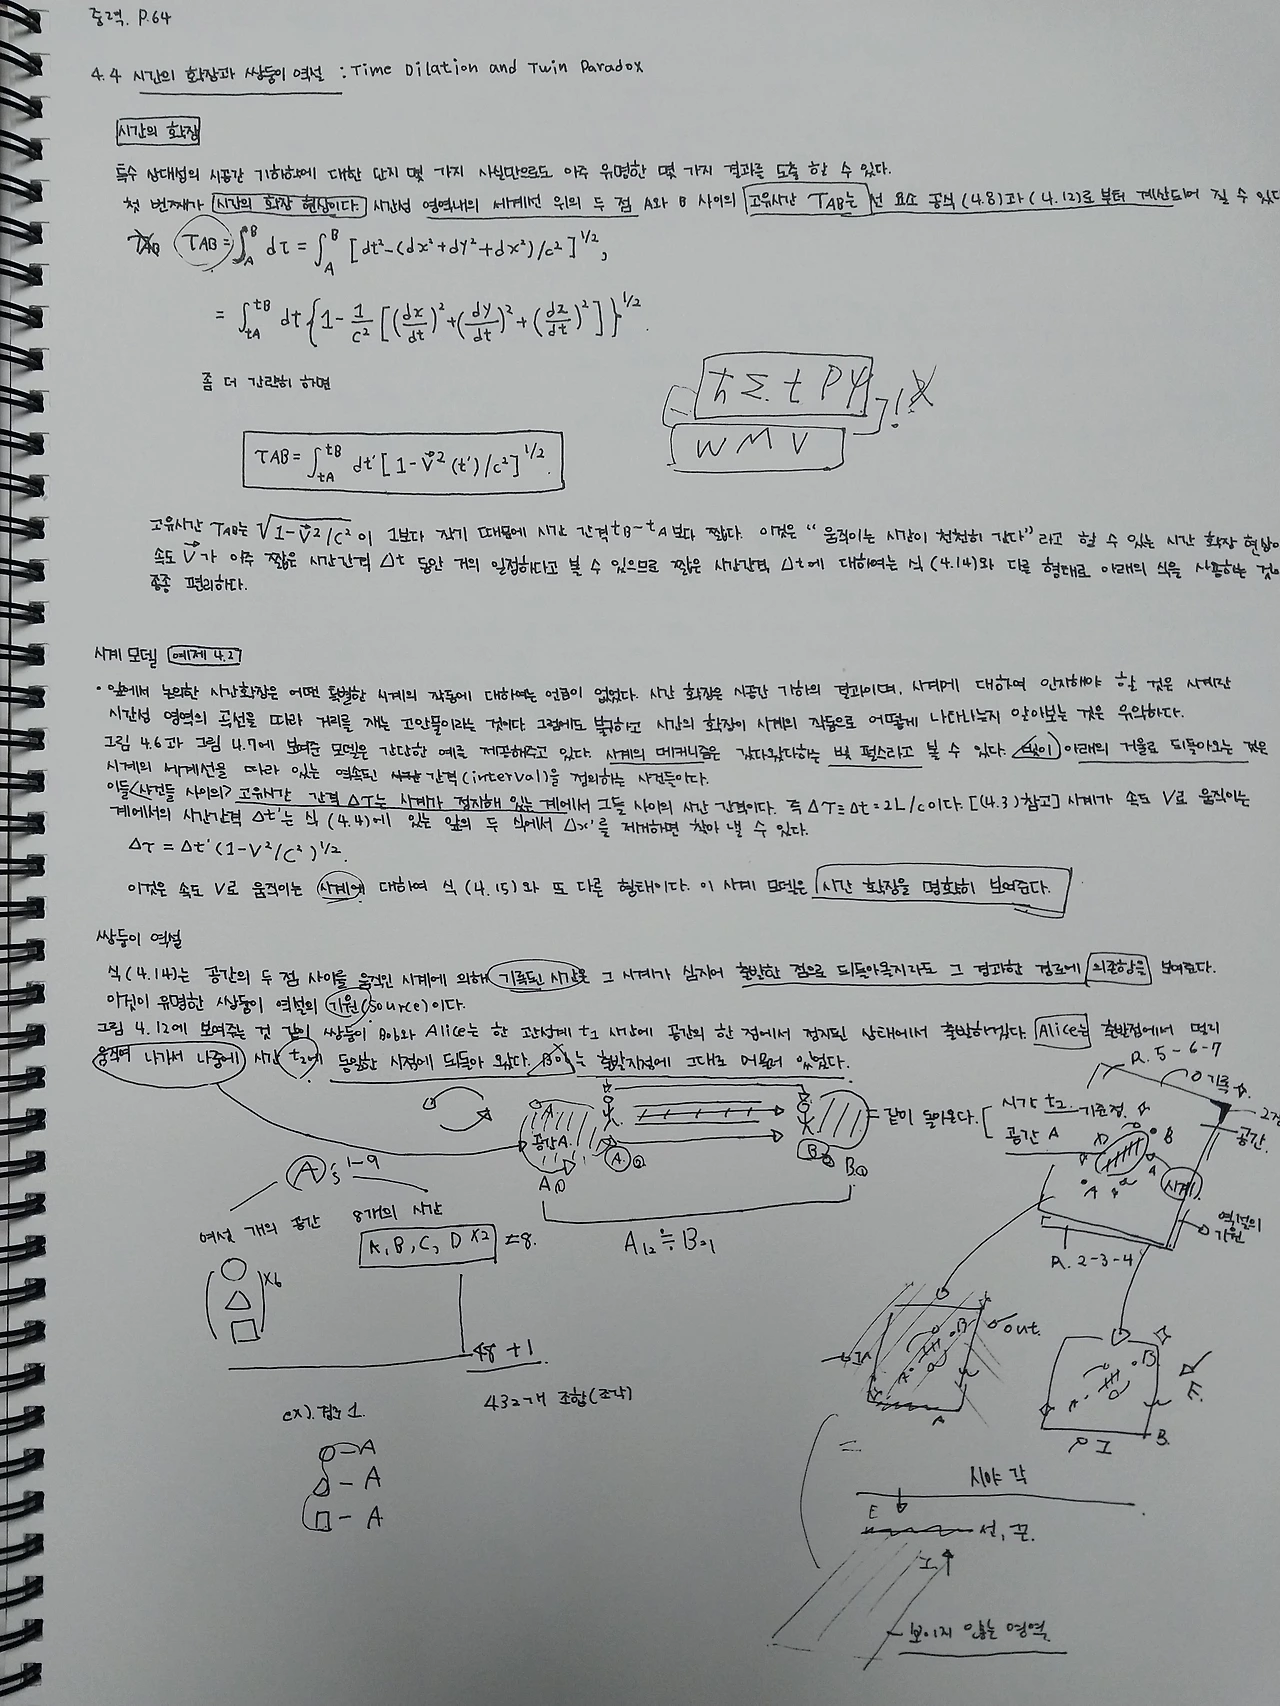 중력. P.64
4.4 시간의 확장과 쌍둥이 역설 : Time Dilation and Twin Paradox
시간의 확장
특수 상대성의 시공간 기하학에 대한 단지 몇 가지 사실만으로도 아주 유명한 몇 가지 결과를 도출 할 수 있다.
첫 번째가 시간의 확장 현상이다. 시간성 영역내의 세계선 위의 두 점 A와 B 사이의 고유시간 τAB는 선 요소 공식(4.8)과 (4.12)로부터 계산되어 질 수 있다
τAB = ∫_A^B dτ = ∫_A^B [dt²-(dx²+dy²+dx²)/c²]^1/2,
= ∫_tA^tB dt{1-1/c²[(dx/dt)²+(dy/dt)²+(dz/dt)²]}^1/2.
좀 더 간략히 하면
ħ Σ t P Ψ
W M V
τAB = ∫_tA^tB dt'[1-V⃗²(t')/c²]^1/2.
고유시간 τAB는 √1-V⃗²/c² 이 1보다 작기 때문에 시간 간격 tB-tA보다 짧다. 이것은 "움직이는 시간이 천천히 간다"라고 할 수 있는 시간 확장 현상이
속도 V⃗가 아주 짧은 시간간격 Δt 동안 거의 일정하다고 볼 수 있으므로 짧은 시간간격 Δt에 대하여는 식 (4.14)와 다른 형태로 아래의 식을 사용하는 것이
종종 편리하다.
시계 모델 예제 4.2
• 앞에서 논의한 시간확장은 어떤 특별한 시계의 작동에 대하여는 언급이 없었다. 시간 확장은 시공간 기하의 결과이며, 시계에 대하여 인지해야 할 것은 시계란
시간성 영역의 곡선을 따라 거리를 재는 고안물이라는 것이다. 그럼에도 불구하고 시간의 확장이 시계의 작동으로 어떻게 나타나는지 알아보는 것은 유익하다.
그림 4.6과 그림 4.7에 보여준 모델은 간단한 예를 제공해주고 있다. 시계의 메커니즘은 갔다왔다하는 빛 펄스라고 볼 수 있다. 빛이 아래의 거울로 되돌아오는 것은
시계의 세계선을 따라 있는 연속된 간격(interval)을 정의하는 사건들이다.
이들<사건들 사이의> 고유시간 간격 Δτ는 시계가 정지해 있는 계에서 그들 사이의 시간 간격이다. 즉 Δτ=Δt=2L/c이다. [(4.3)참고] 시계가 속도 V로 움직이는
계에서의 시간간격 Δt'는 식 (4.4)에 있는 앞의 두 식에서 Δx'를 제거하면 찾아 낼 수 있다.
Δτ = Δt'(1-V²/c²)^1/2.
이것은 속도 V로 움직이는 시계에 대하여 식 (4.15)와 또 다른 형태이다. 이 시계 모델은 시간 확장을 명확히 보여준다.
쌍둥이 역설
식(4.14)는 공간의 두 점 사이를 움직인 시계에 의해 기록된 시간은 그 시계가 심지어 출발한 점으로 되돌아올지라도 그 경과한 경로에 의존함을 보여준다.
이것이 유명한 쌍둥이 역설의 기원(source)이다.
그림 4.12에 보여주는 것 같이 쌍둥이 Bob와 Alice는 한 관성계 t1 시간에 공간의 한 점에서 정지된 상태에서 출발하겠다. Alice는 출발점에서 멀리
움직여 나가서 나중에 시간 t2에 동일한 시점에 되돌아 왔다. Bob는 출발지점에 그대로 머물러 있었다.
R. 5-6-7
기록
공간A
A
B
A①
B①
=같이 돌아온다.
시간 t2 기준점.
공간 A
공간.
시계
역설의
기원
R. 2-3-4
A 1~9
여섯 개의 공간 8개의 시간
×6
A, B, C, D ×2 =8.
A12 ≒ B21
48 + 1
432개 조합(조각)
ex). 접수 1.
○-A
△-A
□-A
out.
B
A
B
E.
P I
B.
=
시야 각
E
선, 끈.
I.
보이지 않는 영역.